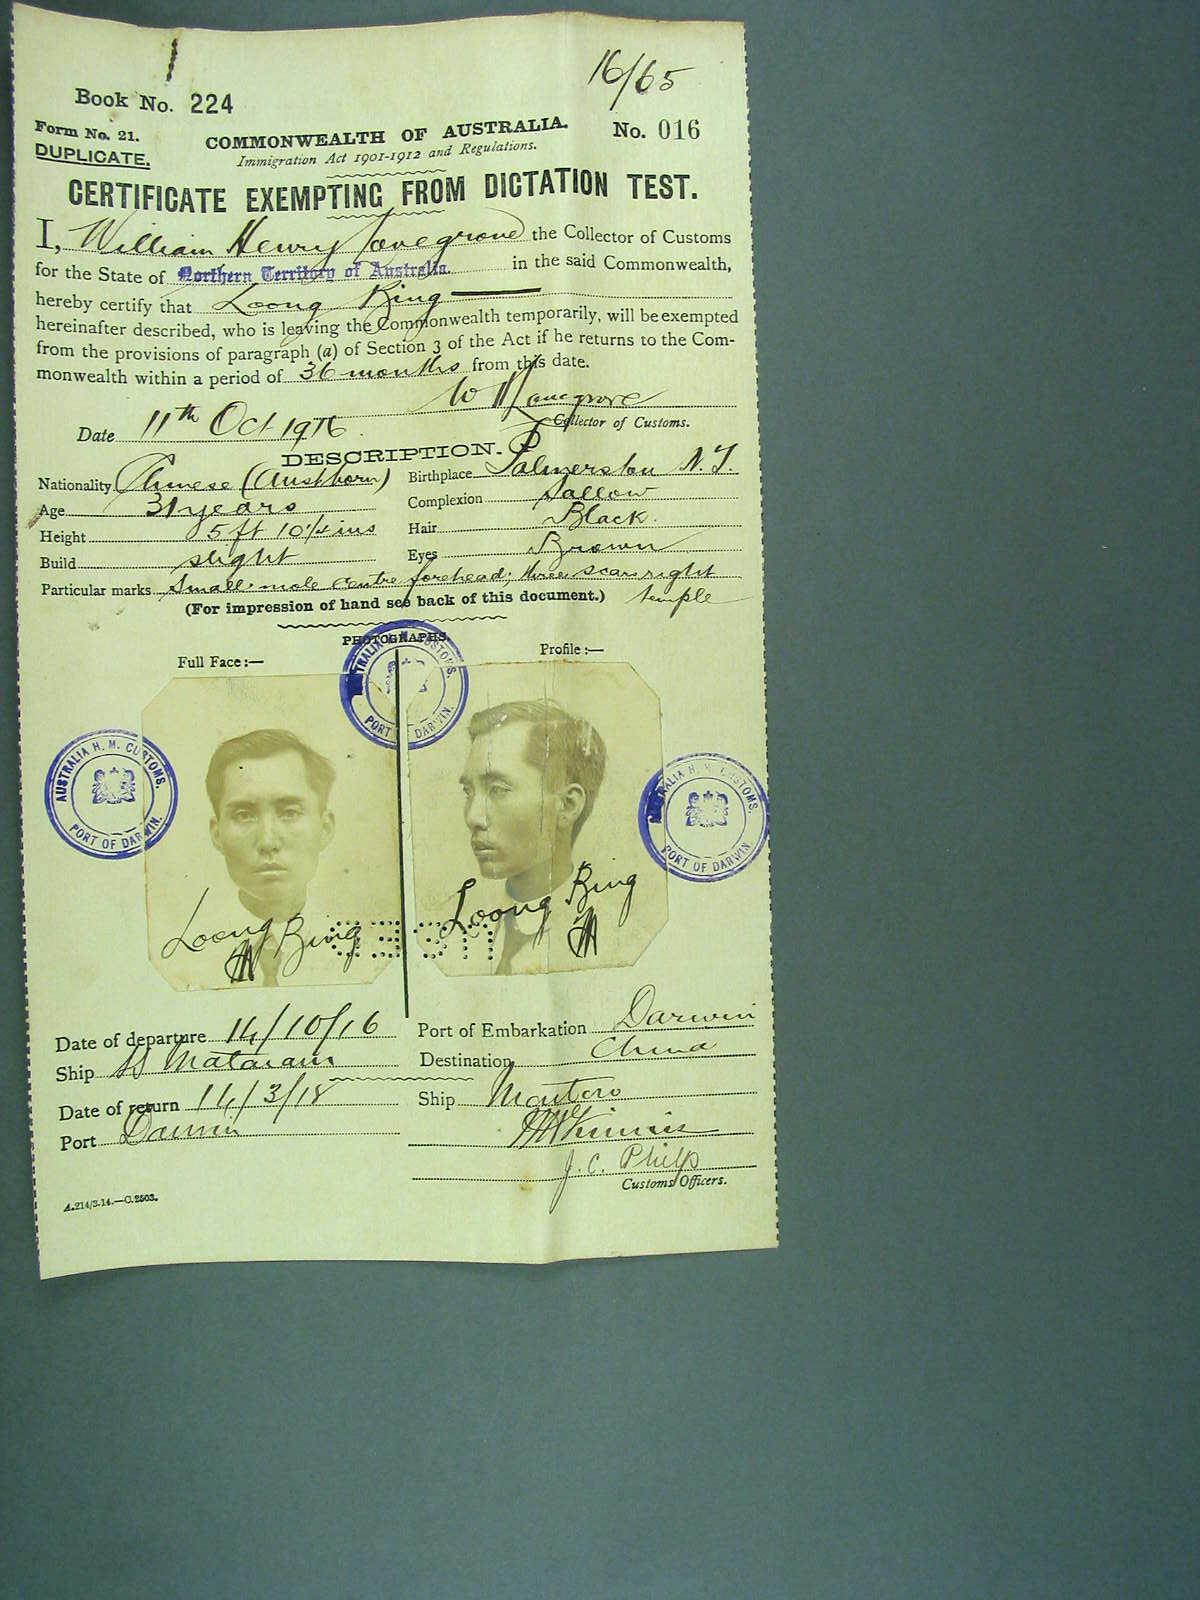 16/65
Book No. 224
Form No. 21.
DUPLICATE.
COMMONWEALTH OF AUSTRALIA.
No. 016
Immigration Act 1901-1912 and Regulations.
CERTIFICATE EXEMPTING FROM DICTATION TEST.
I, William Henry the Collector of Customs
for the State of Northern Territory of Australia. in the said Commonwealth,
hereby certify that Loong Bing
hereinafter described, who is leaving the Commonwealth temporarily, will be exempted
from the provisions of paragraph (a) of Section 3 of the Act if he returns to the Com-
monwealth within a period of 36 months from this date.
Collector of Customs.
Date 11th Oct 1916
DESCRIPTION.
Nationality Chinese (Aust born) Birthplace Palmerston N.T.
Age 31 years Complexion Sallow
Height 5 ft 10 1/4 ins Hair Black.
Build slight Eyes Brown
Particular marks Small mole centre forehead; three scars right
temple
(For impression of hand see back of this document.)
PHOTOGRAPHS.
Full Face:— Profile:—
AUSTRALIA H. M. CUSTOMS.
PORT OF DARWIN.
AUSTRALIA H. M. CUSTOMS.
PORT OF DARWIN.
AUSTRALIA H. M. CUSTOMS.
PORT OF DARWIN
Loong Bing
Loong Bing
Date of departure 14/10/16 Port of Embarkation Darwin
Ship SS Mataram Destination China
Date of return 14/3/18 Ship Montoro
Port Darwin
J. C. Philp
Customs Officers.
A.214/3.14.—C.2503.